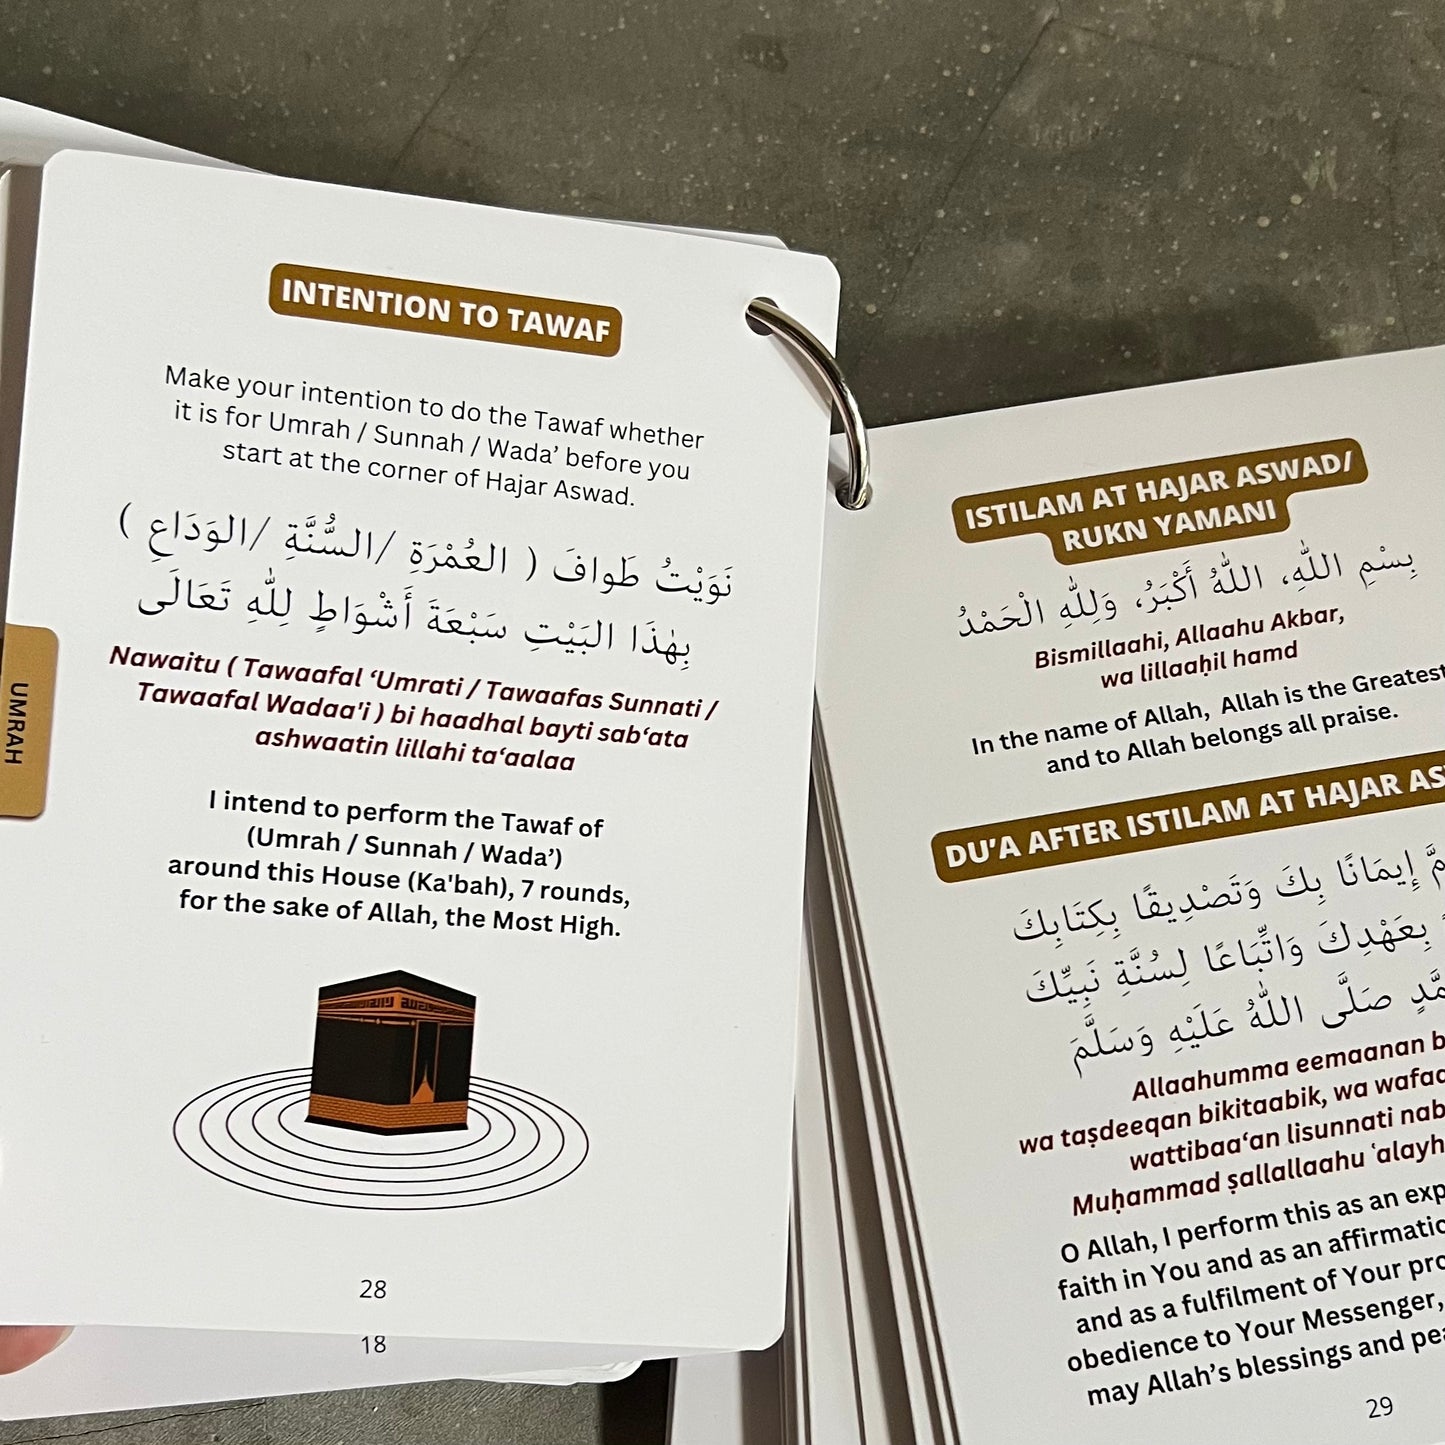 INTENTION TO TAWAF
Make your intention to do the Tawaf whether
it is for Umrah / Sunnah / Wada’ before you
start at the corner of Hajar Aswad.
نَوَيْتُ طَوافَ ( العُمْرَةِ /السُّنَّةِ /الوَدَاعِ )
بِهٰذَا البَيْتِ سَبْعَةَ أَشْوَاطٍ لِلّٰهِ تَعَالَى
Nawaitu ( Tawaafal ‘Umrati / Tawaafas Sunnati /
Tawaafal Wadaa'i ) bi haadhal bayti sab‘ata
ashwaatin lillahi ta‘aalaa
I intend to perform the Tawaf of
(Umrah / Sunnah / Wada’)
around this House (Ka'bah), 7 rounds,
for the sake of Allah, the Most High.
28
18
UMRAH
ISTILAM AT HAJAR ASWAD/
RUKN YAMANI
بِسْمِ اللّٰهِ، اللّٰهُ أَكْبَرُ، وَلِلّٰهِ الْحَمْدُ
Bismillaahi, Allaahu Akbar,
wa lillaaḥil hamd
In the name of Allah, Allah is the Greatest
and to Allah belongs all praise.
DU’A AFTER ISTILAM AT HAJAR AS
إِيمَانًا بِكَ وَتَصْدِيقًا بِكِتَابِكَ
بِعَهْدِكَ وَاتِّبَاعًا لِسُنَّةِ نَبِيِّكَ
صَلَّى اللّٰهُ عَلَيْهِ وَسَلَّمَ
Allaahumma eemaanan b
wa taṣdeeqan bikitaabik, wa wafaa
wattibaa‘an lisunnati nab
Muḥammad ṣallallaahu ‘alayh
O Allah, I perform this as an exp
faith in You and as an affirmatio
and as a fulfilment of Your pro
obedience to Your Messenger,
may Allah’s blessings and pea
29